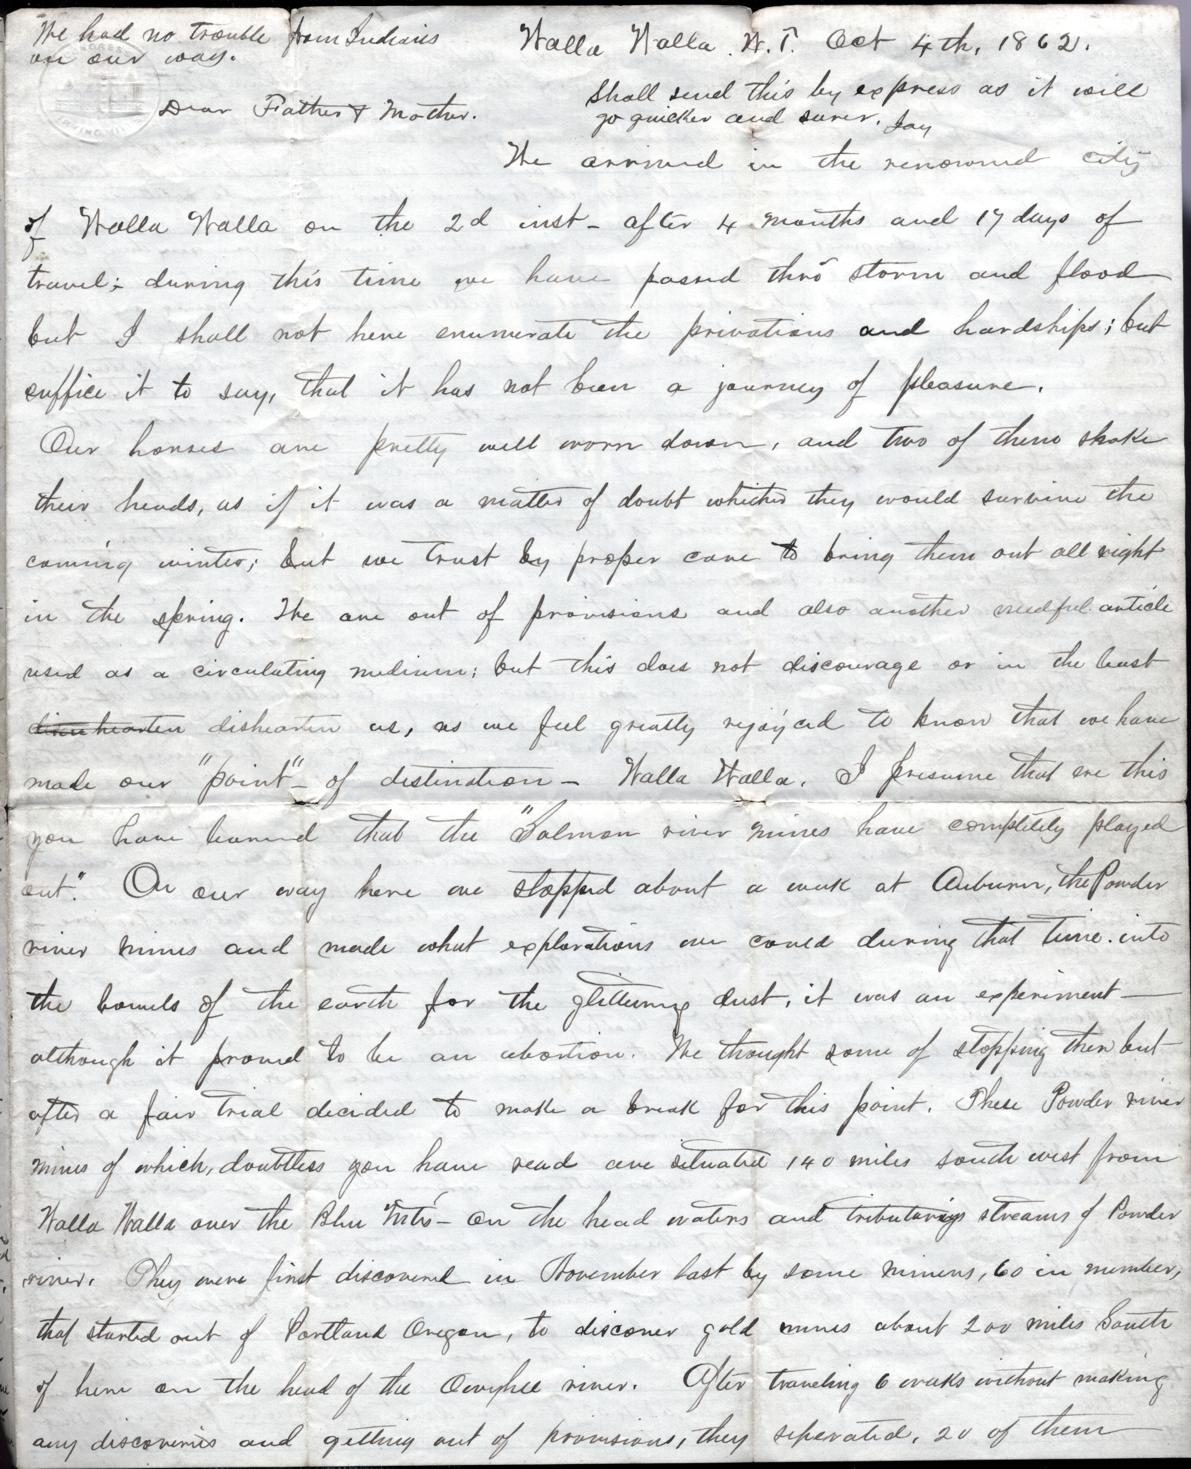 We had no trouble from Indians
on our way.
Walla Walla. W.T. Oct 4th, 1862.
Shall send this by express as it will
go quicker and surer. Jay
Dear Father & Mother.
We arrived in the renowned city
of Walla Walla on the 2d inst - after 4 months and 17 days of
travel; during this time we have passed thro' storm and flood
but I shall not here enumerate the privations and hardships; but
suffice it to say, that it has not been a journey of pleasure.
Our horses are pretty well worn down, and two of them shake
their heads, as if it was a matter of doubt whether they would survive the
coming winter; but we trust by proper care to bring them out all right
in the spring. We are out of provisions and also another needful article
used as a circulating medium; but this does not discourage or in the least
dishearten us, as we feel greatly rejoyced to know that we have
made our "point" - of destination - Walla Walla. I presume that ere this
you have learned that the "Salmon river mines have completely played
out." On our way here we stopped about a week at Auburn, the Powder
river mines and made what explorations we could during that time. into
the bowels of the earth for the glittering dust, it was an experiment -
although it proved to be an abortion. We thought some of stopping there but
after a fair trial decided to make a break for this point. These Powder river
mines of which, doubtless you have read are situated 140 miles south west from
Walla Walla over the Blue Mts - On the head waters and tributarys streams of Powder
river. They were first discovered in November last by some miners, 60 in number,
that started out of Portland Oregon, to discover gold mines about 200 miles South
of here on the head of the Owyhee river. After traveling 6 weeks without making
any discoveries and getting out of provisions, they seperated, 20 of them